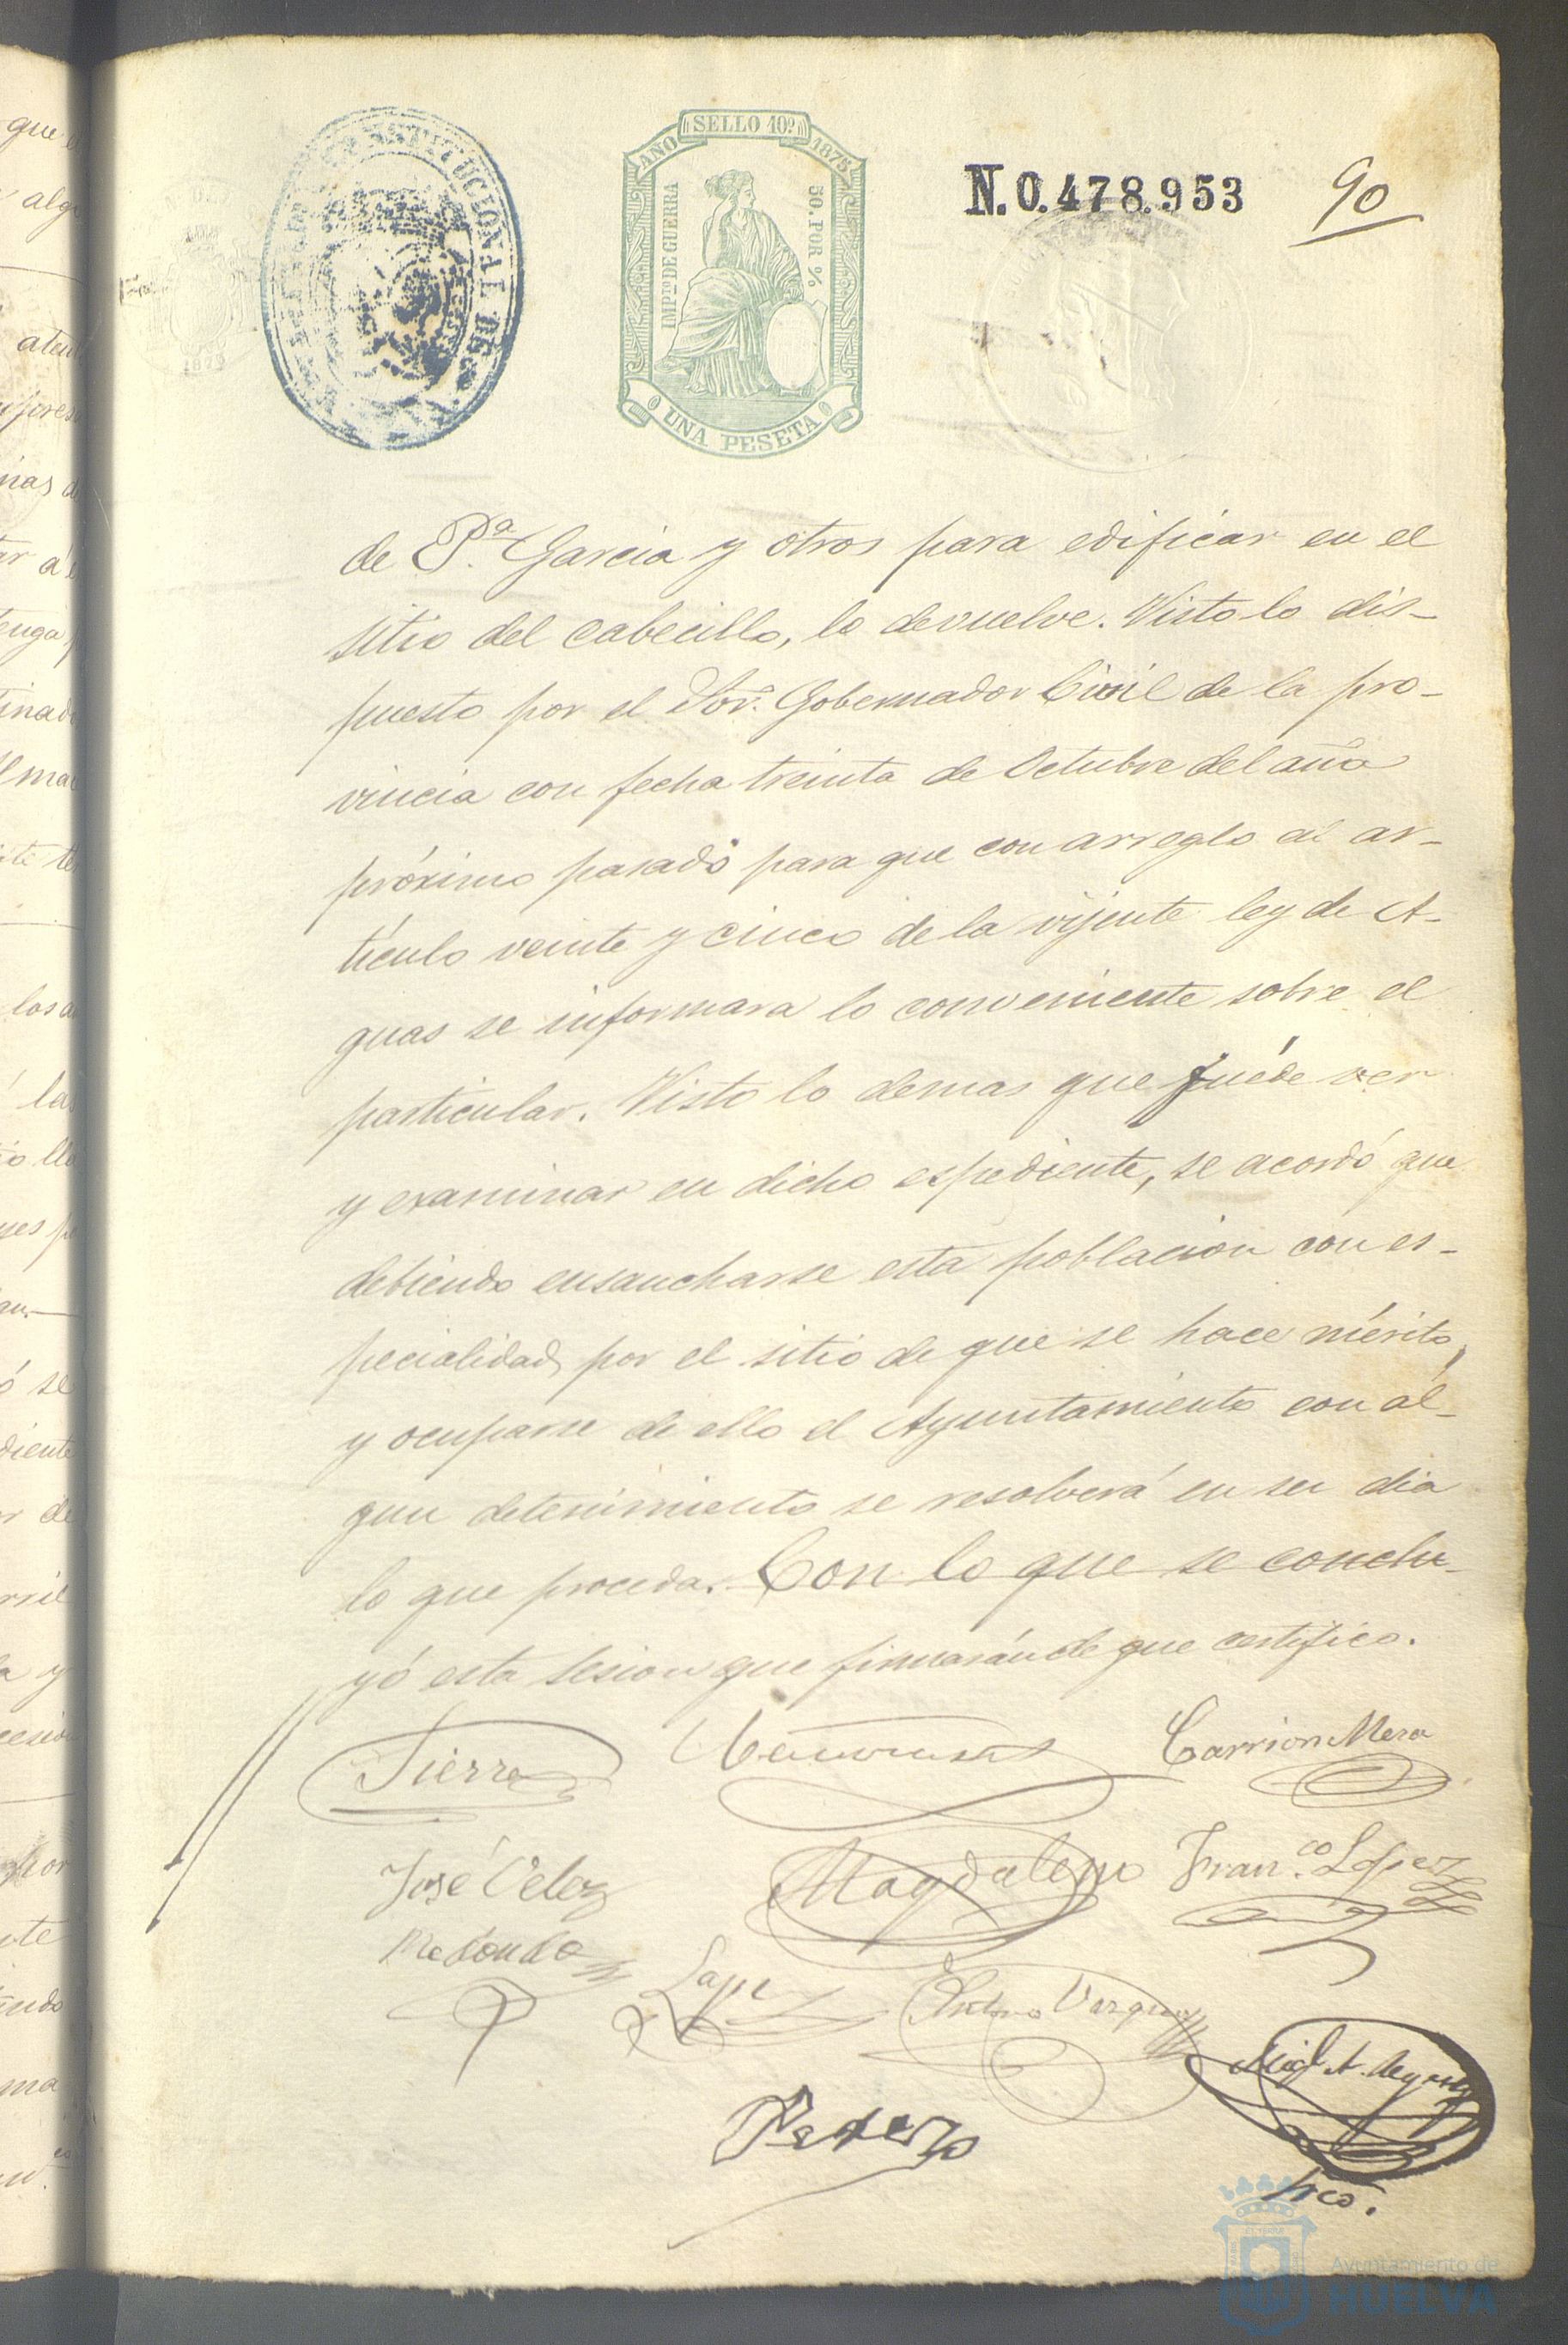 CONSTITUCIONAL DE
SELLO 10º
AÑO 1875
IMPTO DE GUERRA
50. POR %
UNA PESETA
N. 0.478.953
90
de Pª. Garcia y otros para edificar en el
sitio del cabecillo, lo devuelve. Visto lo dis-
puesto por el Sor. Gobernador Civil de la pro-
vincia con fecha treinta de Octubre del año
próximo pasado para que con arreglo al ar-
tículo veinte y cinco de la vijente ley de A-
guas se informara lo conveniente sobre el
particular. Visto lo demas que puéde ver
y examinar en dicho espediente, se acordó que
debiendo ensancharse esta poblacion con es-
pecialidad por el sitio de que se hace mérito,
y ocuparse de ello el Ayuntamiento con al-
gun detenimiento se resolverá en su dia
lo que proceda. Con lo que se conclu-
yó esta sesion que firmarán de que certifico.
Tierra
Carrion Mera
José Velez
Magdaleno
Fran.co Lopez
Redondo
Antonio Vazquez
Srio.
Ayuntamiento de
HUELVA